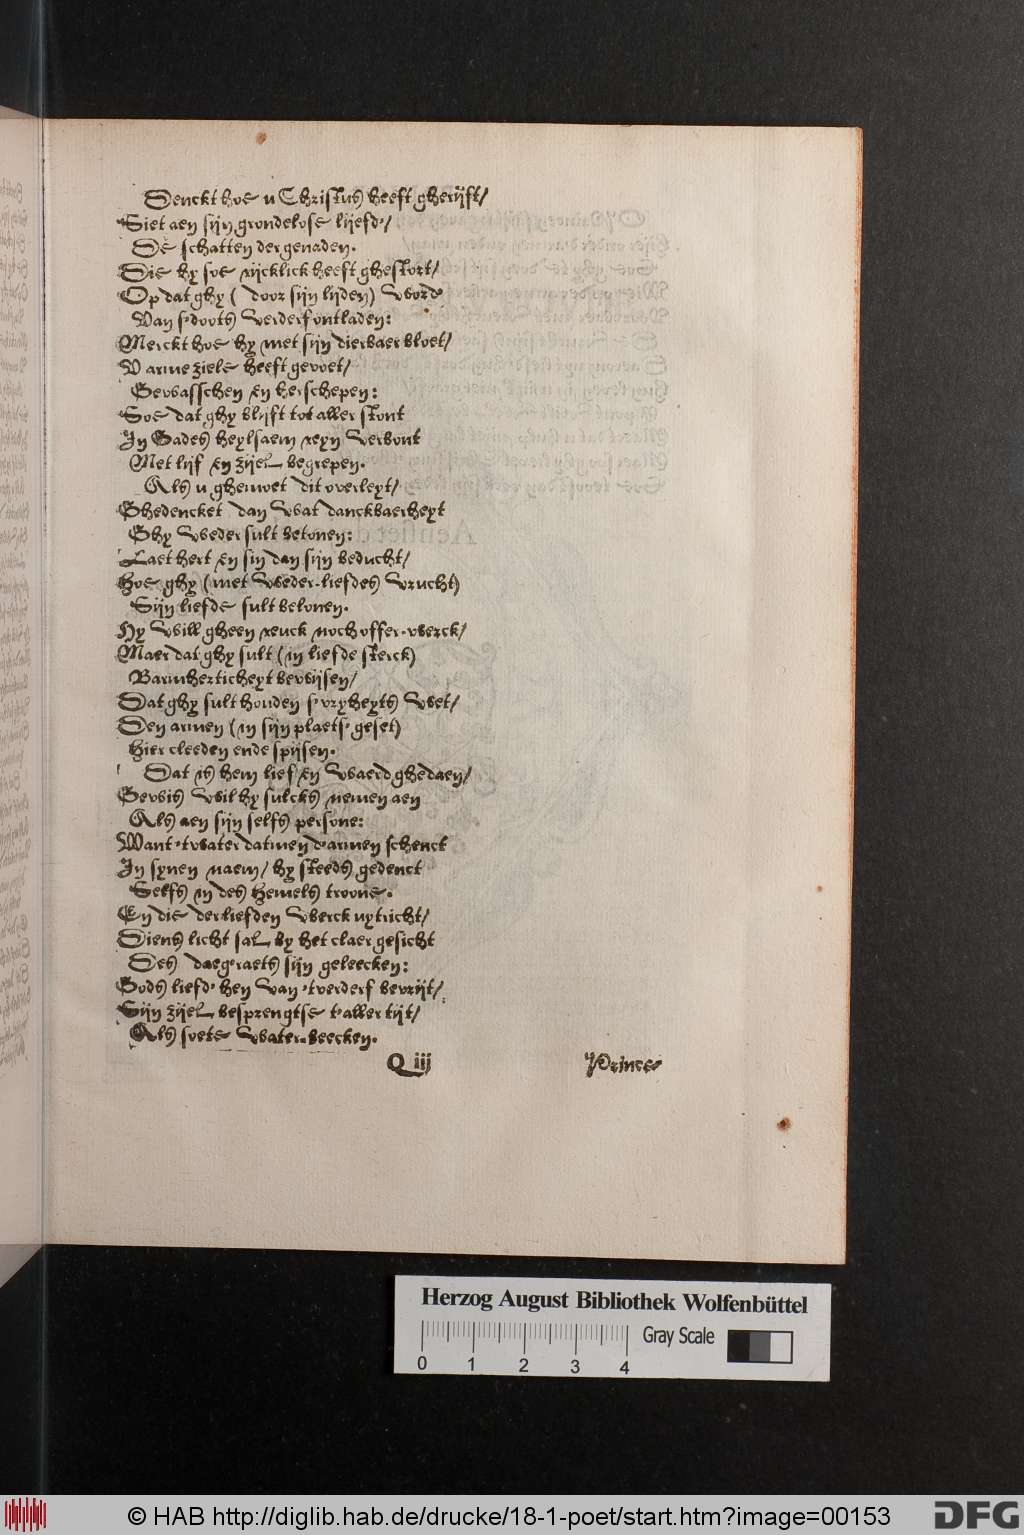 Denckt hoe u Christus heeft gherijft/
Siet aen sijn grondelose lijefd',
De schatten der genaden.
Die hy soe rijcklick heeft ghestort/
Op dat ghy (door sijn lijden) word'
Van s'doots verderf ontladen:
Merckt hoe hy met sijn dierbaer bloet/
V arme ziele heeft gevoet/
Gewasschen en herschepen:
Soe dat ghy blijft tot aller stont
In Gades heylsaem reyn verbont
Met lijf en zijel begrepen.
Als u ghemoet dit overleyt/
Ghedencket dan wat danckbaerheyt
Ghy weder sult betonen:
Laet hert en sin dan sijn beducht/
Hoe ghy (met weder-liefdes vrucht)
Sijn liefde sult belonen.
Hy will gheen reuck noch offer-werck/
Maer dat ghy sult (in liefde sterck)
Barmherticheyt bewijsen/
Dat ghy sult houden s'vryheyts wet/
Den armen (in sijn plaets' geset)
Hier cleeden ende spijsen.
Dat is hem lief en waerd ghedaen/
Gewis wil hy sulcks nemen aen
Als aen sijn selfs persone:
Want 'twater datmen d'armen schenct
In synen naem/ hy steeds gedenct
Selfs in des hemels troone.
En die der liefden werck uytricht/
Diens licht sal by het claer gesicht
Des daegeraets sijn geleecken:
Gods liefd' hen van 'tverderf bevrijt/
Sijn zijel besprengtse t'aller tijt/
Als soete water-beecken.
Q iij Prince
Herzog August Bibliothek Wolfenbüttel
Gray Scale
0 1 2 3 4
© HAB http://diglib.hab.de/drucke/18-1-poet/start.htm?image=00153
DFG